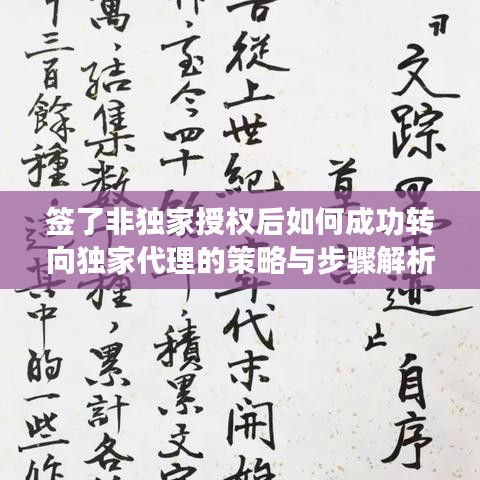 签了非独家授权后如何成功转
向独家代理的策略与步骤解析
文踪
自序
從上世紀
年代末開始
至今四十
積累文字
萬，結集數
種，累計各
十三百餘種，這其中的一些作